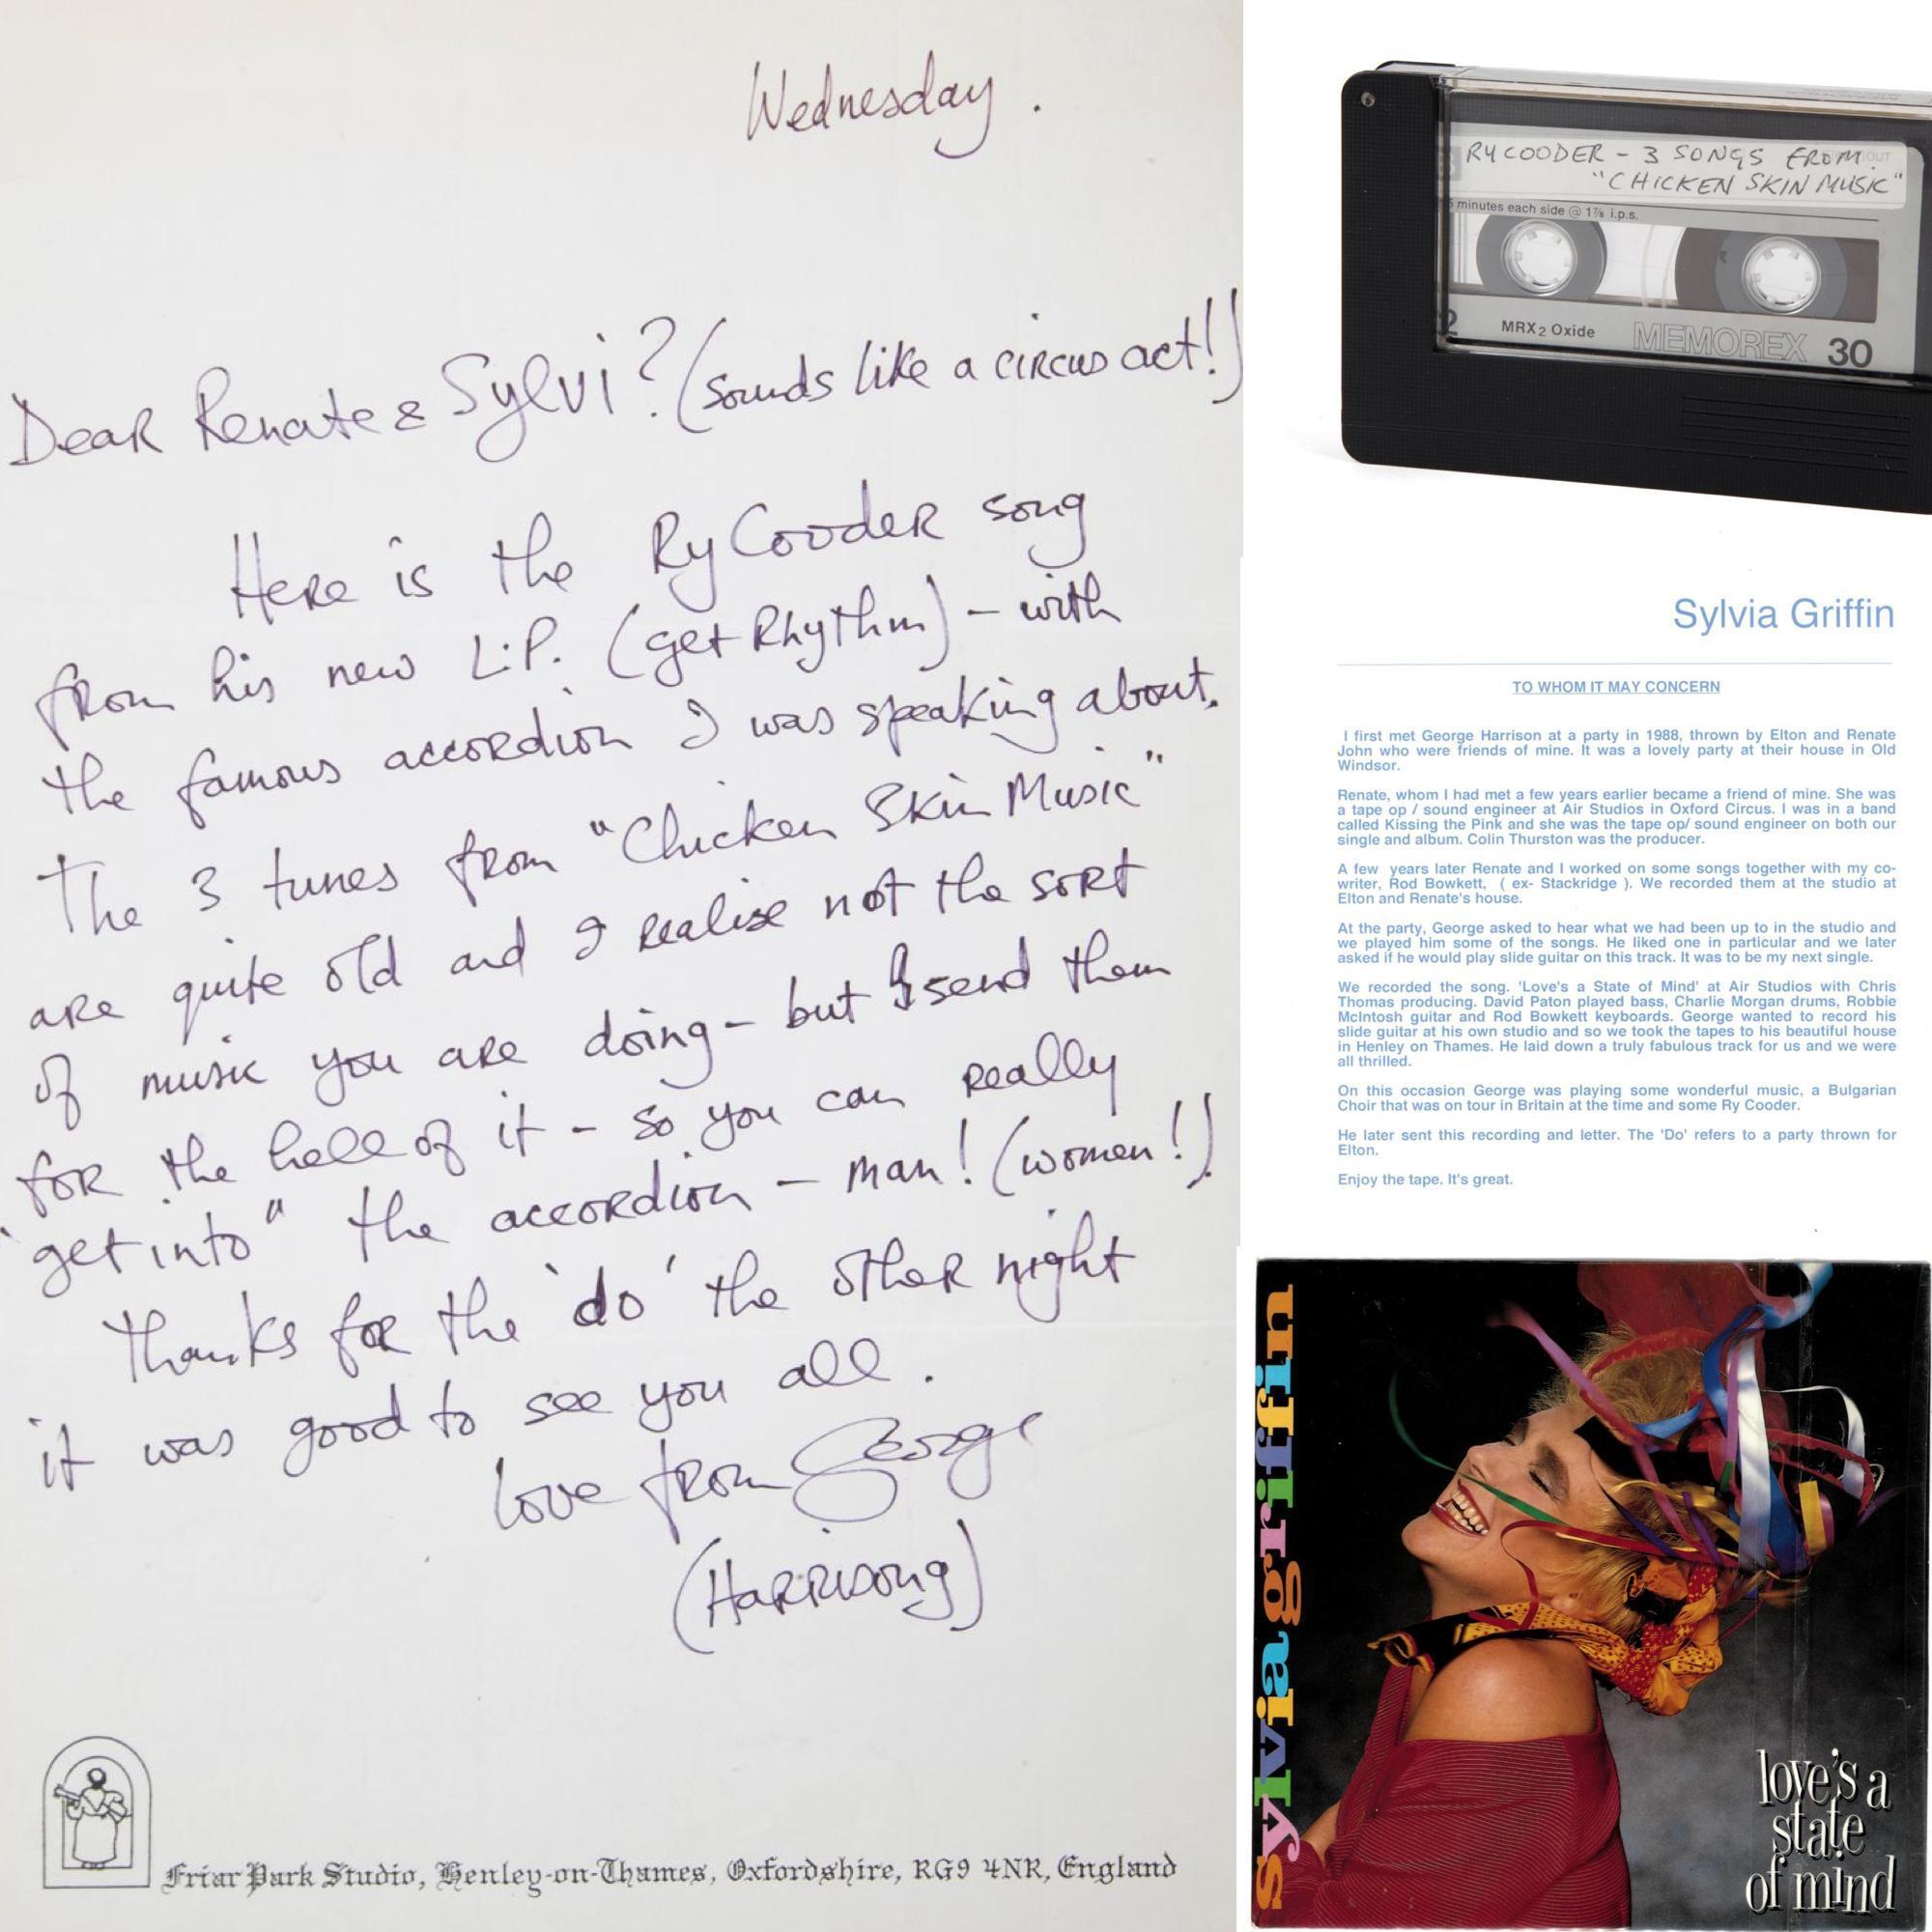 Wednesday.
Dear Renate & Sylvi? (sounds like a circus act!)
Here is the Ry Cooder song
from his new L.P. (get Rhythm) – with
the famous accordion I was speaking about.
The 3 tunes from "Chicken Skin Music"
are quite old and I realise not the sort
of music you are doing – but I send them
for the hell of it – so you can really
"get into" the accordion – man! (women!)
Thanks for the 'do' the other night
it was good to see you all.
Love from George
(Harrisong)
Friar Park Studio, Henley-on-Thames, Oxfordshire, RG9 4NR, England
RY COODER – 3 SONGS FROM
"CHICKEN SKIN MUSIC"
minutes each side @ 1⅞ i.p.s.
MRX2 Oxide MEMOREX 30
Sylvia Griffin
TO WHOM IT MAY CONCERN
I first met George Harrison at a party in 1988, thrown by Elton and Renate
John who were friends of mine. It was a lovely party at their house in Old
Windsor.
Renate, whom I had met a few years earlier became a friend of mine. She was
a tape op / sound engineer at Air Studios in Oxford Circus. I was in a band
called Kissing the Pink and she was the tape op/ sound engineer on both our
single and album. Colin Thurston was the producer.
A few years later Renate and I worked on some songs together with my co-
writer, Rod Bowkett, ( ex- Stackridge ). We recorded them at the studio at
Elton and Renate's house.
At the party, George asked to hear what we had been up to in the studio and
we played him some of the songs. He liked one in particular and we later
asked if he would play slide guitar on this track. It was to be my next single.
We recorded the song. 'Love's a State of Mind' at Air Studios with Chris
Thomas producing. David Paton played bass, Charlie Morgan drums, Robbie
McIntosh guitar and Rod Bowkett keyboards. George wanted to record his
slide guitar at his own studio and so we took the tapes to his beautiful house
in Henley on Thames. He laid down a truly fabulous track for us and we were
all thrilled.
On this occasion George was playing some wonderful music, a Bulgarian
Choir that was on tour in Britain at the time and some Ry Cooder.
He later sent this recording and letter. The 'Do' refers to a party thrown for
Elton.
Enjoy the tape. It's great.
sylvia griffin
love's a
state
of mind